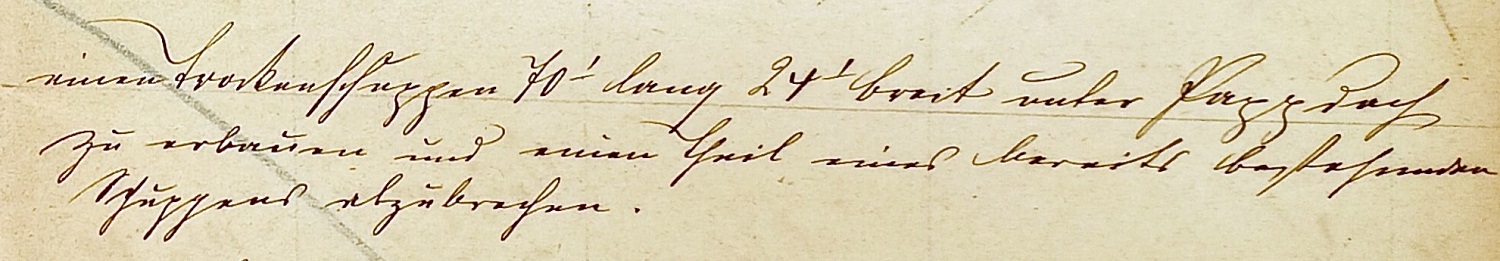 einen Trockenschuppen 70' lang 24' breit unter Pappdach
zu erbauen und einen Theil eines bereits bestehenden
Schuppens abzubrechen.